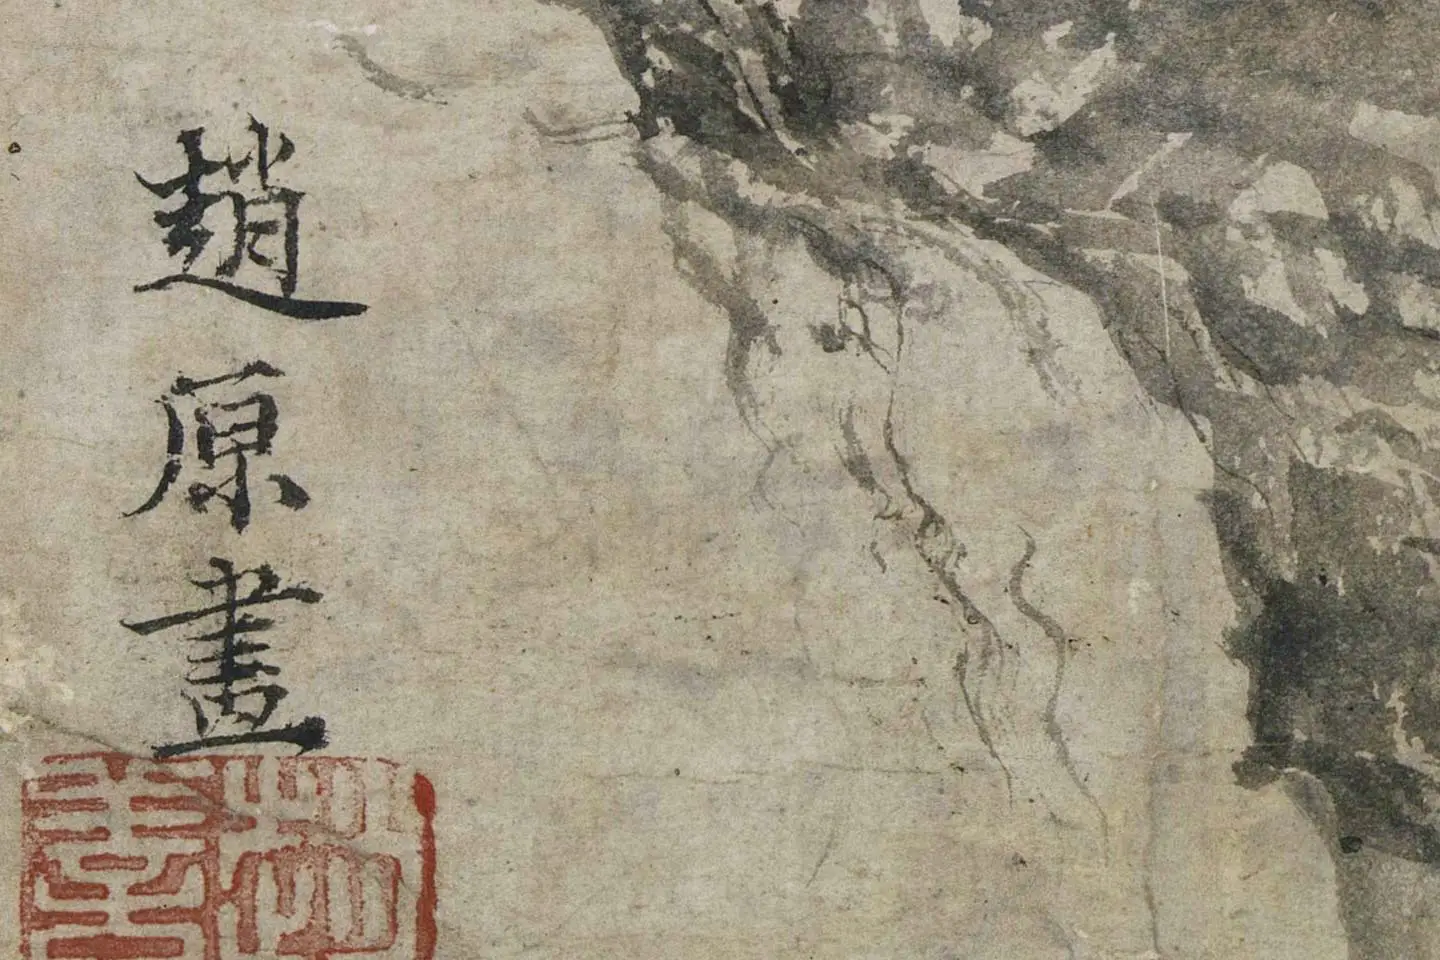 趙原畫